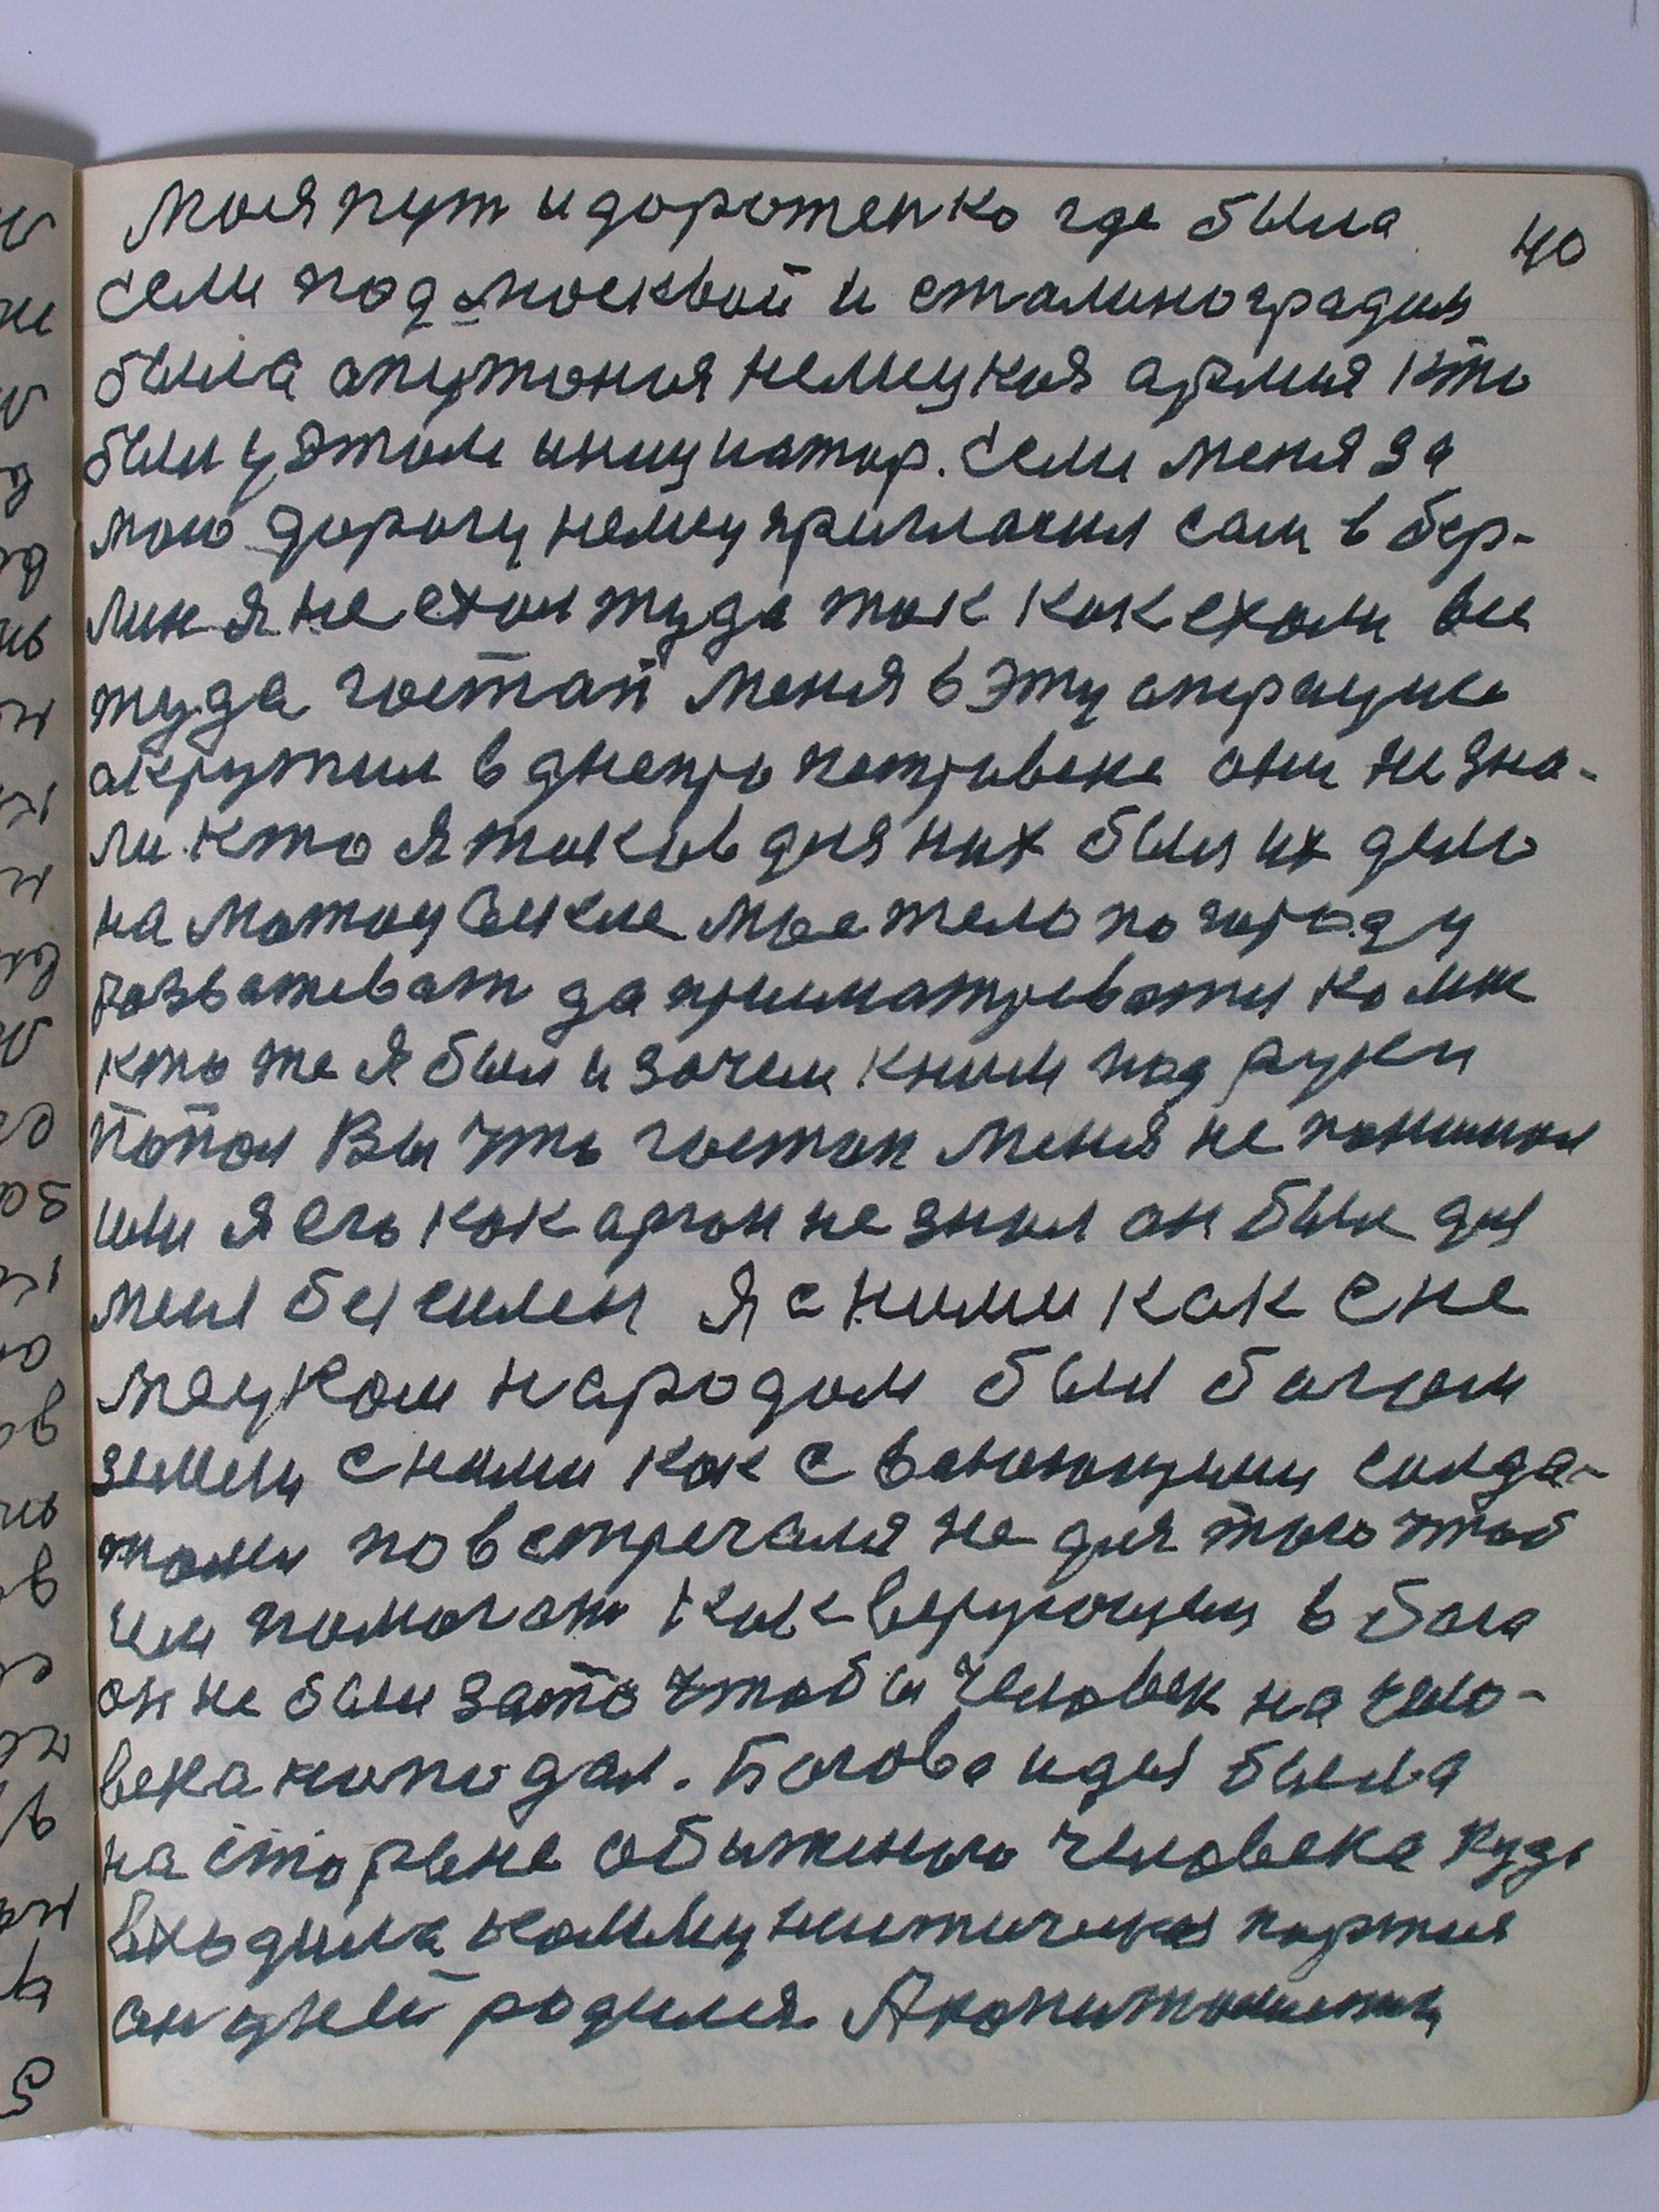 Моя пут и дороженка где была 40
если под москвой и сталиноградом
была опутоная немецкая армия кто
был у этом инициатор. Если меня за
мою дорогу немцы пригласил сам в бер-
лин я не ехал туда так как ехали все
туда гостап меня в эту операцию
окружил в днепро петровске они не зна-
ли кто я таков для них было их дело
на мотоцыкле мое тело по городу
розвоживат да присматриватся ко мне
кто же я был и зачем к ним под руки
попал Вы что гостап меня не понимал
или я его как орган не знал он был для
меня бессилен Я с ними как с не
мецком народом был богом
земли с ними как с воюющими солда-
тами повстречался не для того чтоб
им помогат как верующем в бога
он не был за то чтобы человек на чело-
века нападал. Богова идея была
на стороне обиженого человека куда
входила коммунистическая партия
он у ней родился. А капиталисты